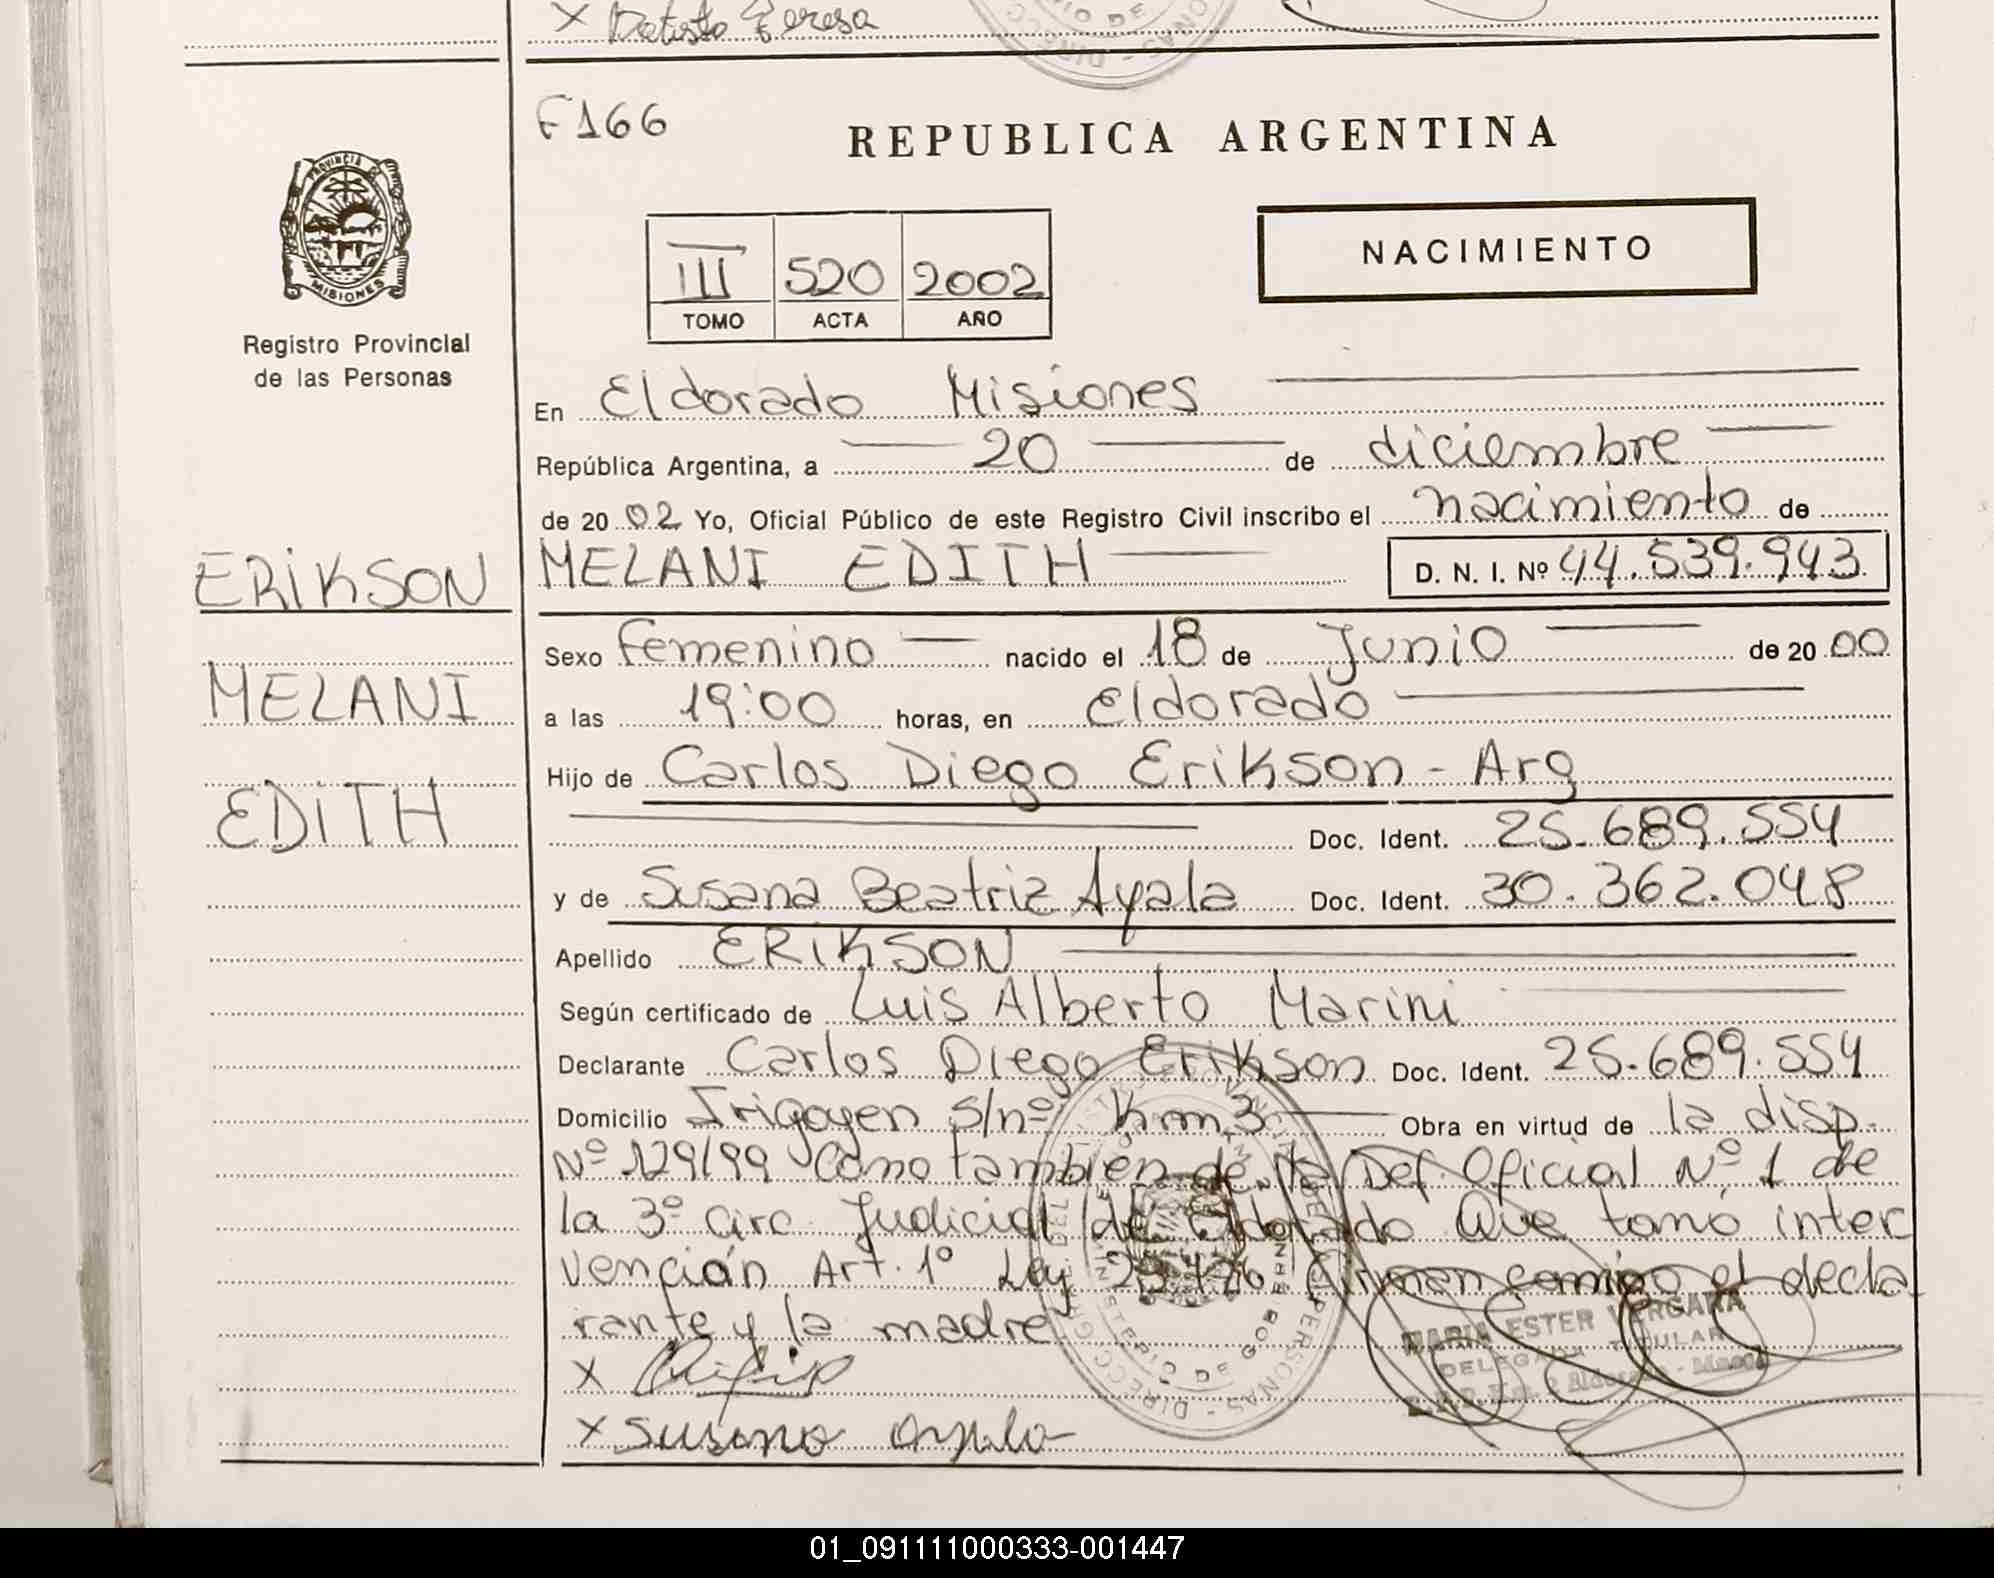 X Batista Teresa
F166
REPUBLICA ARGENTINA
PROVINCIA
MISIONES
Registro Provincial
de las Personas
III 520 2002
TOMO ACTA AÑO
NACIMIENTO
En Eldorado Misiones
República Argentina, a 20 de diciembre
de 20 02 Yo, Oficial Público de este Registro Civil inscribo el nacimiento de
ERIKSON MELANI EDITH D. N. I. Nº 44.539.943
Sexo Femenino nacido el 18 de Junio de 20 00
MELANI
a las 19:00 horas, en Eldorado
Hijo de Carlos Diego Erikson - Arg
EDITH
Doc. Ident. 25.689.554
y de Susana Beatriz Ayala Doc. Ident. 30.362.048
Apellido ERIKSON
Según certificado de Luis Alberto Marini
Declarante Carlos Diego Erikson Doc. Ident. 25.689.554
Domicilio Irigoyen s/nº Km 3 Obra en virtud de la disp.
Nº 129/99 Como tambien de la Def. Oficial Nº 1 de
la 3º Circ. Judicial de Eldorado Que tomó inter
vención Art. 1º Ley Firman comigo el decla
rante y la madre
MARIA ESTER VERGARA
DELEGADA TITULAR
X
X Susana Ayala
01_091111000333-001447